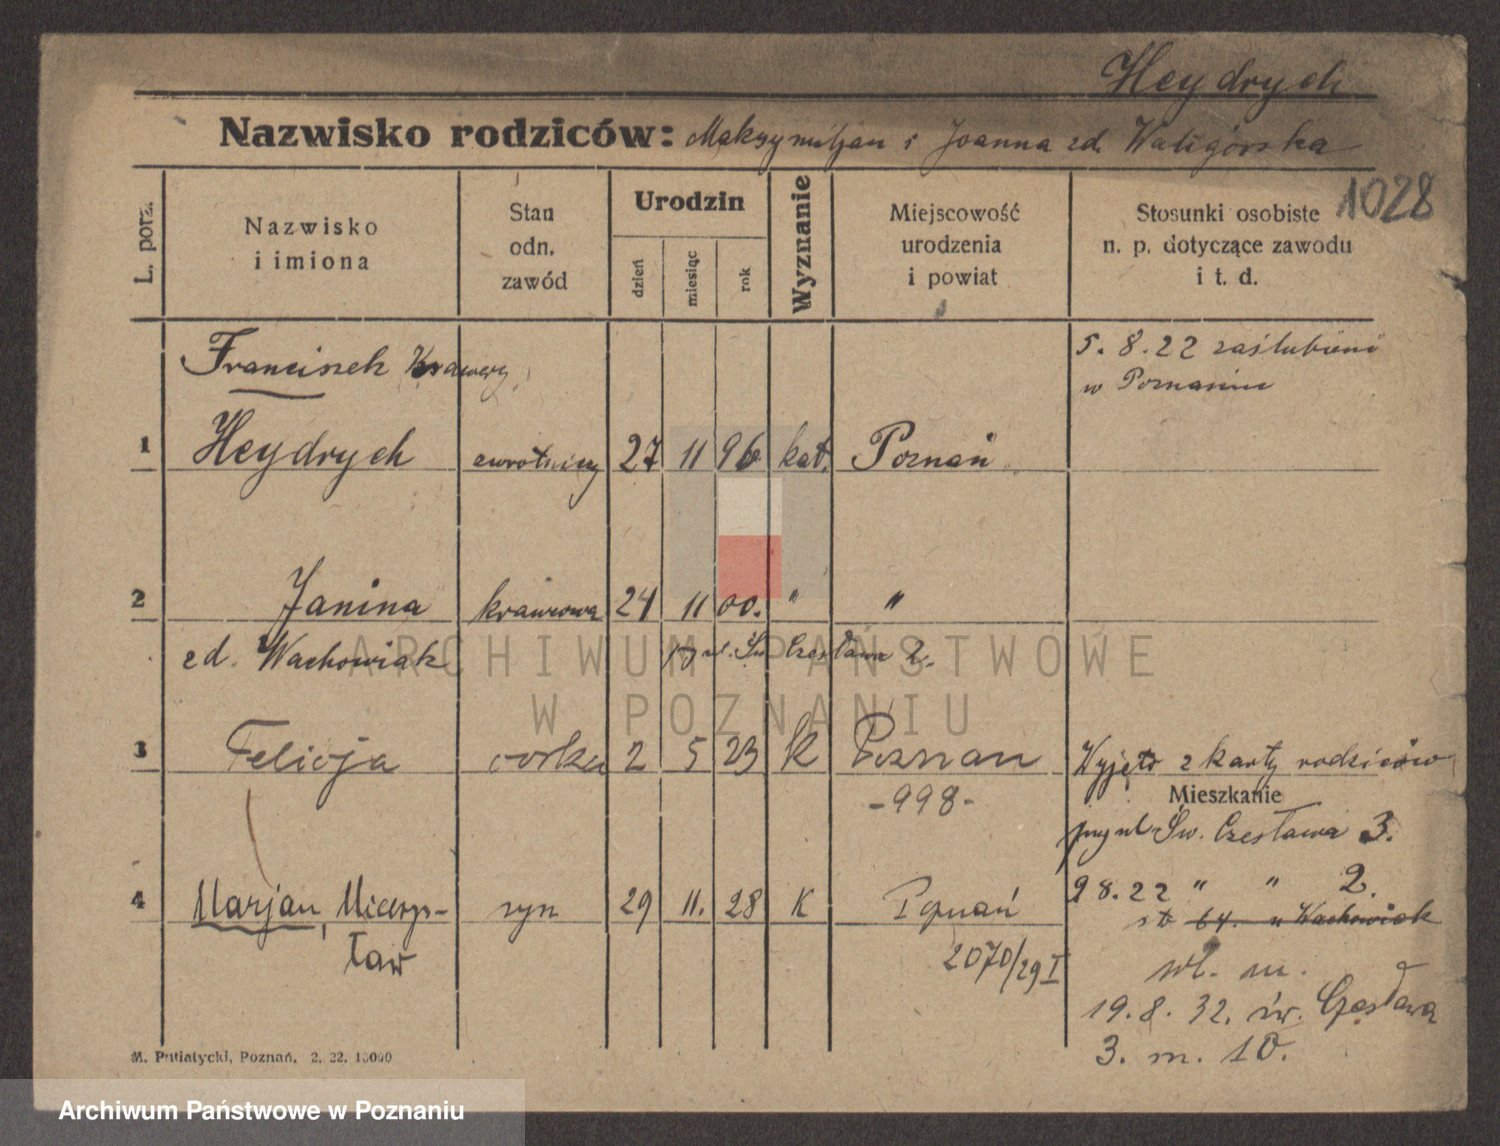 Heydrych
Nazwisko rodziców: Maksymiljan i Joanna zd. Waligórska
1028
L. porz.
Nazwisko
i imiona
Stan
odn.
zawód
Urodzin
dzień
miesiąc
rok
Wyznanie
Miejscowość
urodzenia
i powiat
Stosunki osobiste
n. p. dotyczące zawodu
i t. d.
Franciszek Ksawery
5. 8. 22 zaślubieni
w Poznaniu
1 Heydrych zwrotniczy 27 11 96 kat. Poznań
2 Janina krawcowa 24 11 00. " "
zd. Wachowiak ul. Św Czesława 2.
3 Felicja córka 2 5 23 k Poznan Wyjęto z karty rodziców
- 998 -
Mieszkanie
przy ul Św. Czesława 3.
9 8. 22 " " 2.
4 Marjan, Mieczy- syn 29 11. 28 K Poznań
64. u Wachowiak
ław
2070/29 I
wł. m.
19. 8. 32. św. Czesława
3. m. 10.
M. Putiatycki, Poznań. 2. 22. 10000
ARCHIWUM PAŃSTWOWE
W POZNANIU
Archiwum Państwowe w Poznaniu